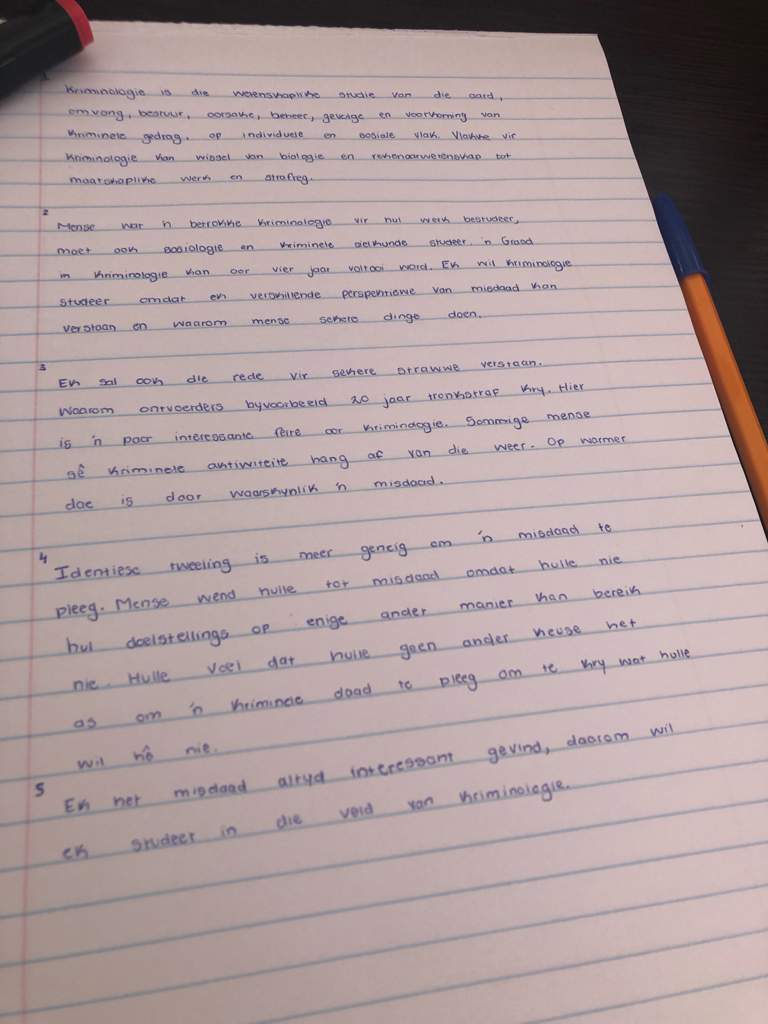 1
Kriminologie is die wetenskaplike studie van die aard,
omvang, bestuur, oorsake, beheer, gevolge en voorkoming van
kriminele gedrag, op individuele en sosiale vlak. Vlakke vir
Kriminologie kan wissel van biologie en rekenaarwetenskap tot
maatskaplike werk en strafreg.
2
Mense wat 'n betrokke kriminologie vir hul werk bestudeer,
moet ook sosiologie en kriminele sielkunde studeer. 'n Graad
in kriminologie kan oor vier jaar voltooi word. Ek wil kriminologie
studeer omdat ek verskillende perspektiewe van misdaad kan
verstaan en waarom mense sekere dinge doen.
3
Ek sal ook die rede vir sekere strawwe verstaan.
Waarom ontvoerders byvoorbeeld 20 jaar tronkstraf kry. Hier
is 'n paar interessante feite oor kriminologie. Sommige mense
sê kriminele aktiwiteite hang af van die weer. Op warmer
dae is daar waarskynlik 'n misdaad.
4
Identiese tweeling is meer geneig om 'n misdaad te
pleeg. Mense wend hulle tot misdaad omdat hulle nie
hul doelstellings op enige ander manier kan bereik
nie. Hulle voel dat hulle geen ander keuse het
as om 'n kriminele daad te pleeg om te kry wat hulle
wil hê nie.
5
Ek het misdaad altyd interessant gevind, daarom wil
ek studeer in die veld van kriminologie.